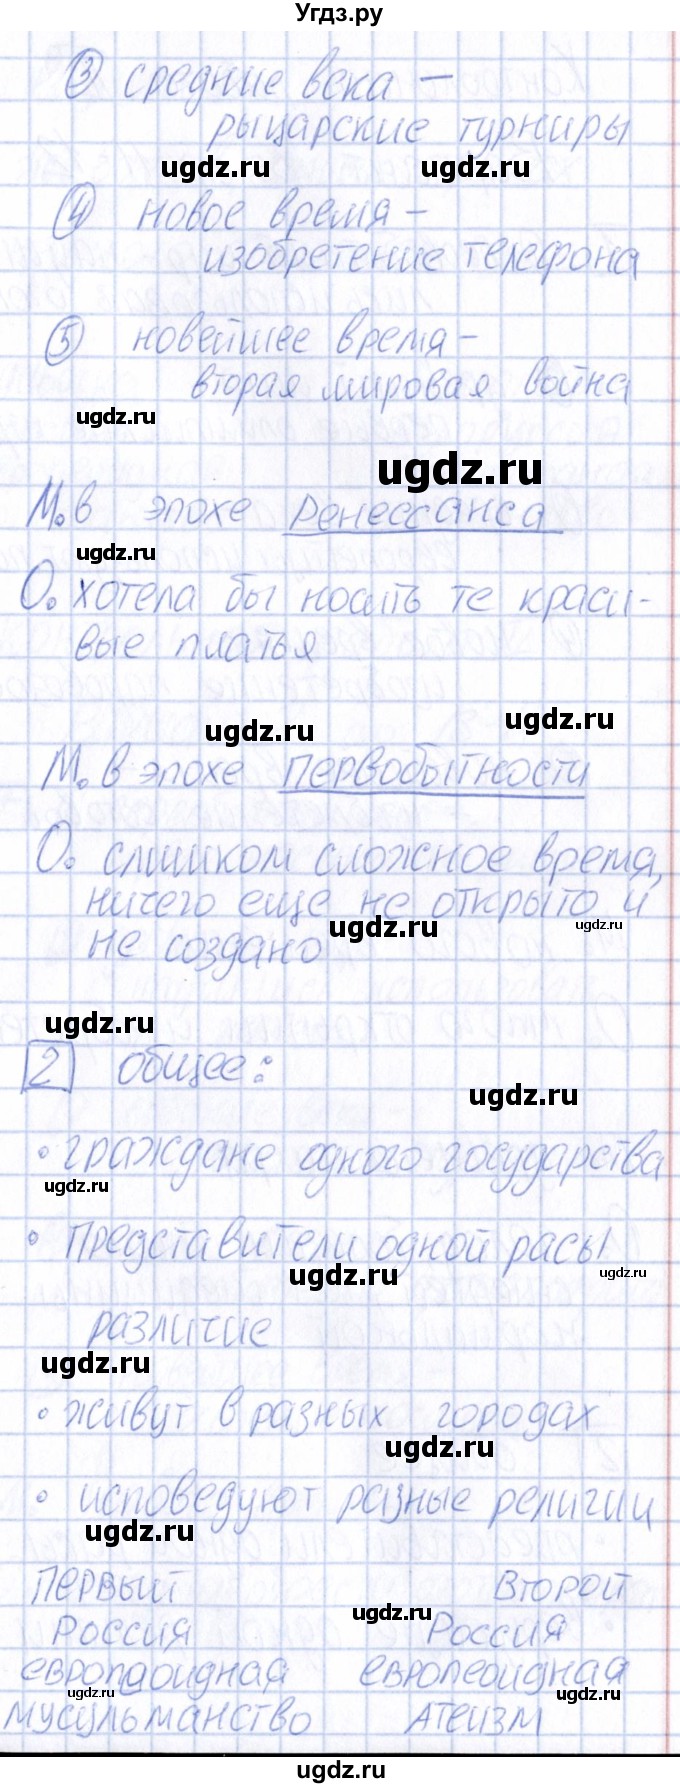 Угдз.ру
3 средние века –
рыцарские турниры
ugdz.ru ugdz.ru
4 новое время –
изобретение телефона
5 новейшее время –
вторая мировая война
ugdz.ru
ugdz.ru
М. в эпохе Ренессанса
ugdz.ru
О. хотела бы носить те краси-
вые платья
ugdz.ru ugdz.ru
М. в эпохе Первобытности
О. слишком сложное время,
ничего еще не открыто и
ugdz.ru ugdz.ru
не создано
ugdz.ru
2 общее:
ugdz.ru
• граждане одного государства
ugdz.ru
• представители одной расы
ugdz.ru ugdz.ru
различие
ugdz.ru
• живут в разных городах
ugdz.ru
• исповедуют разные религии
ugdz.ru
первый второй
ugdz.ru
Россия Россия
европаоидная европеоидная
ugdz.ru ugdz.ru
мусульманство атеизм
ugdz.ru